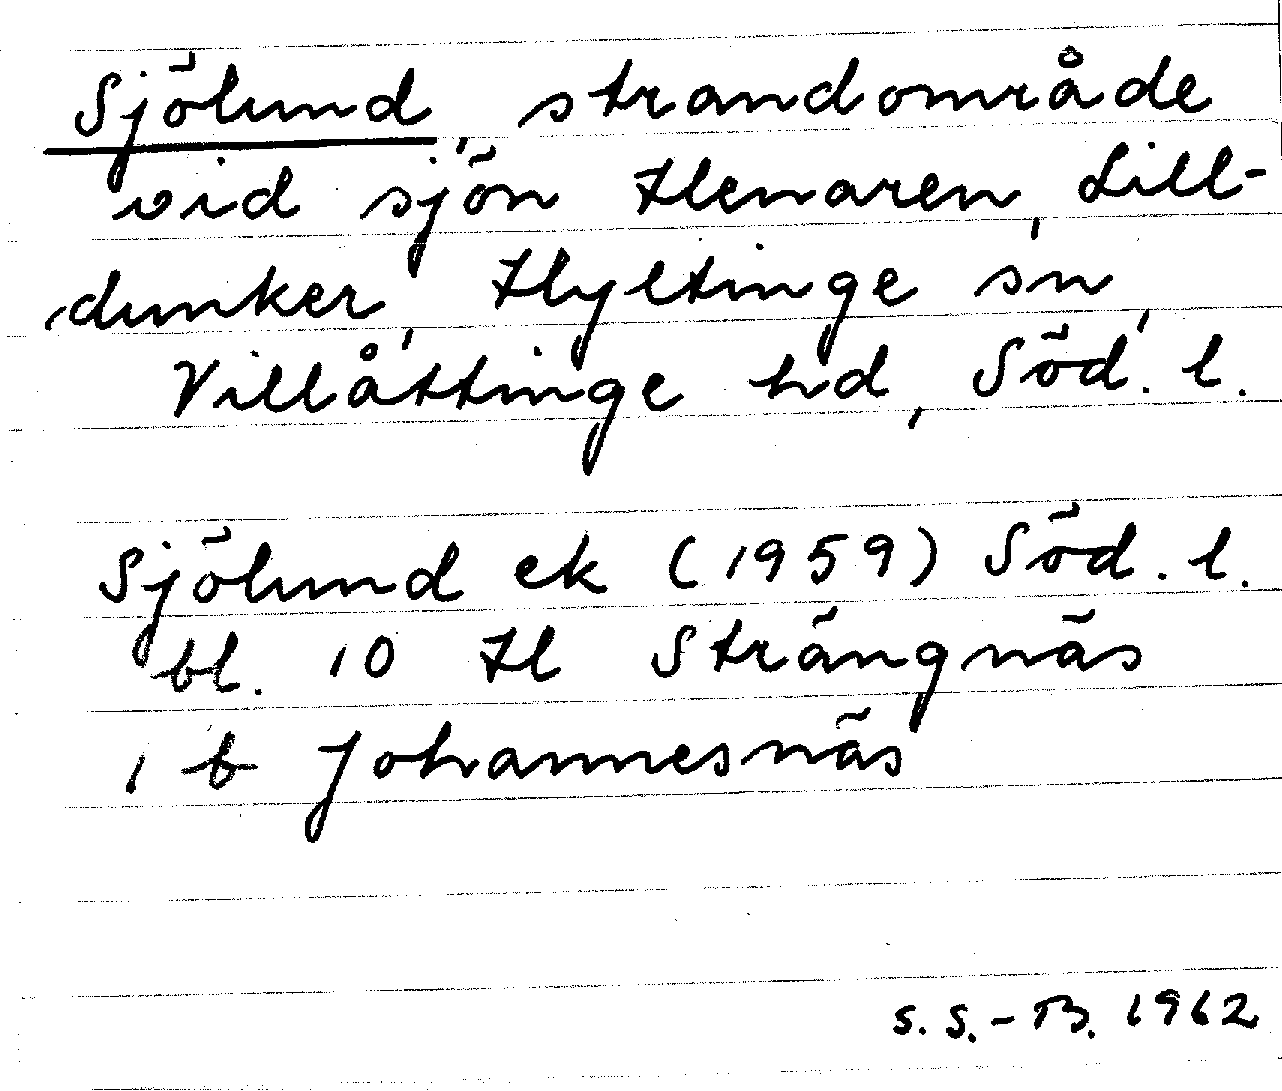 Sjölund, strandområde
vid sjön Henaren, Lill-
dunker, Hyltinge sn,
Villåttinge hd, Söd. l.
Sjölund ek (1959) Söd. l.
bl. 10 H Strängnäs
1 b Johannesnäs
S. S.-B. 1962